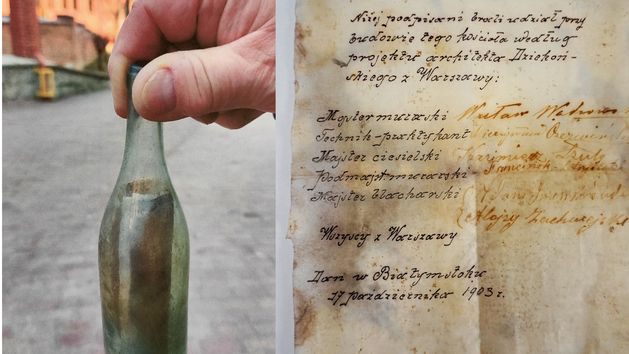 Niżej podpisani brali udział przy
budowie tego kościoła według
projektów architekta Dziekoń-
skiego z Warszawy:
Majster murarski Wacław
Technik-praktykant
Majster ciesielski Kazimierz Zulc
Podmajst. murarski Franciszek
Majster blacharski
Alojzy
Wszyscy z Warszawy
Dan w Białymstoku
17 października 1903 r.